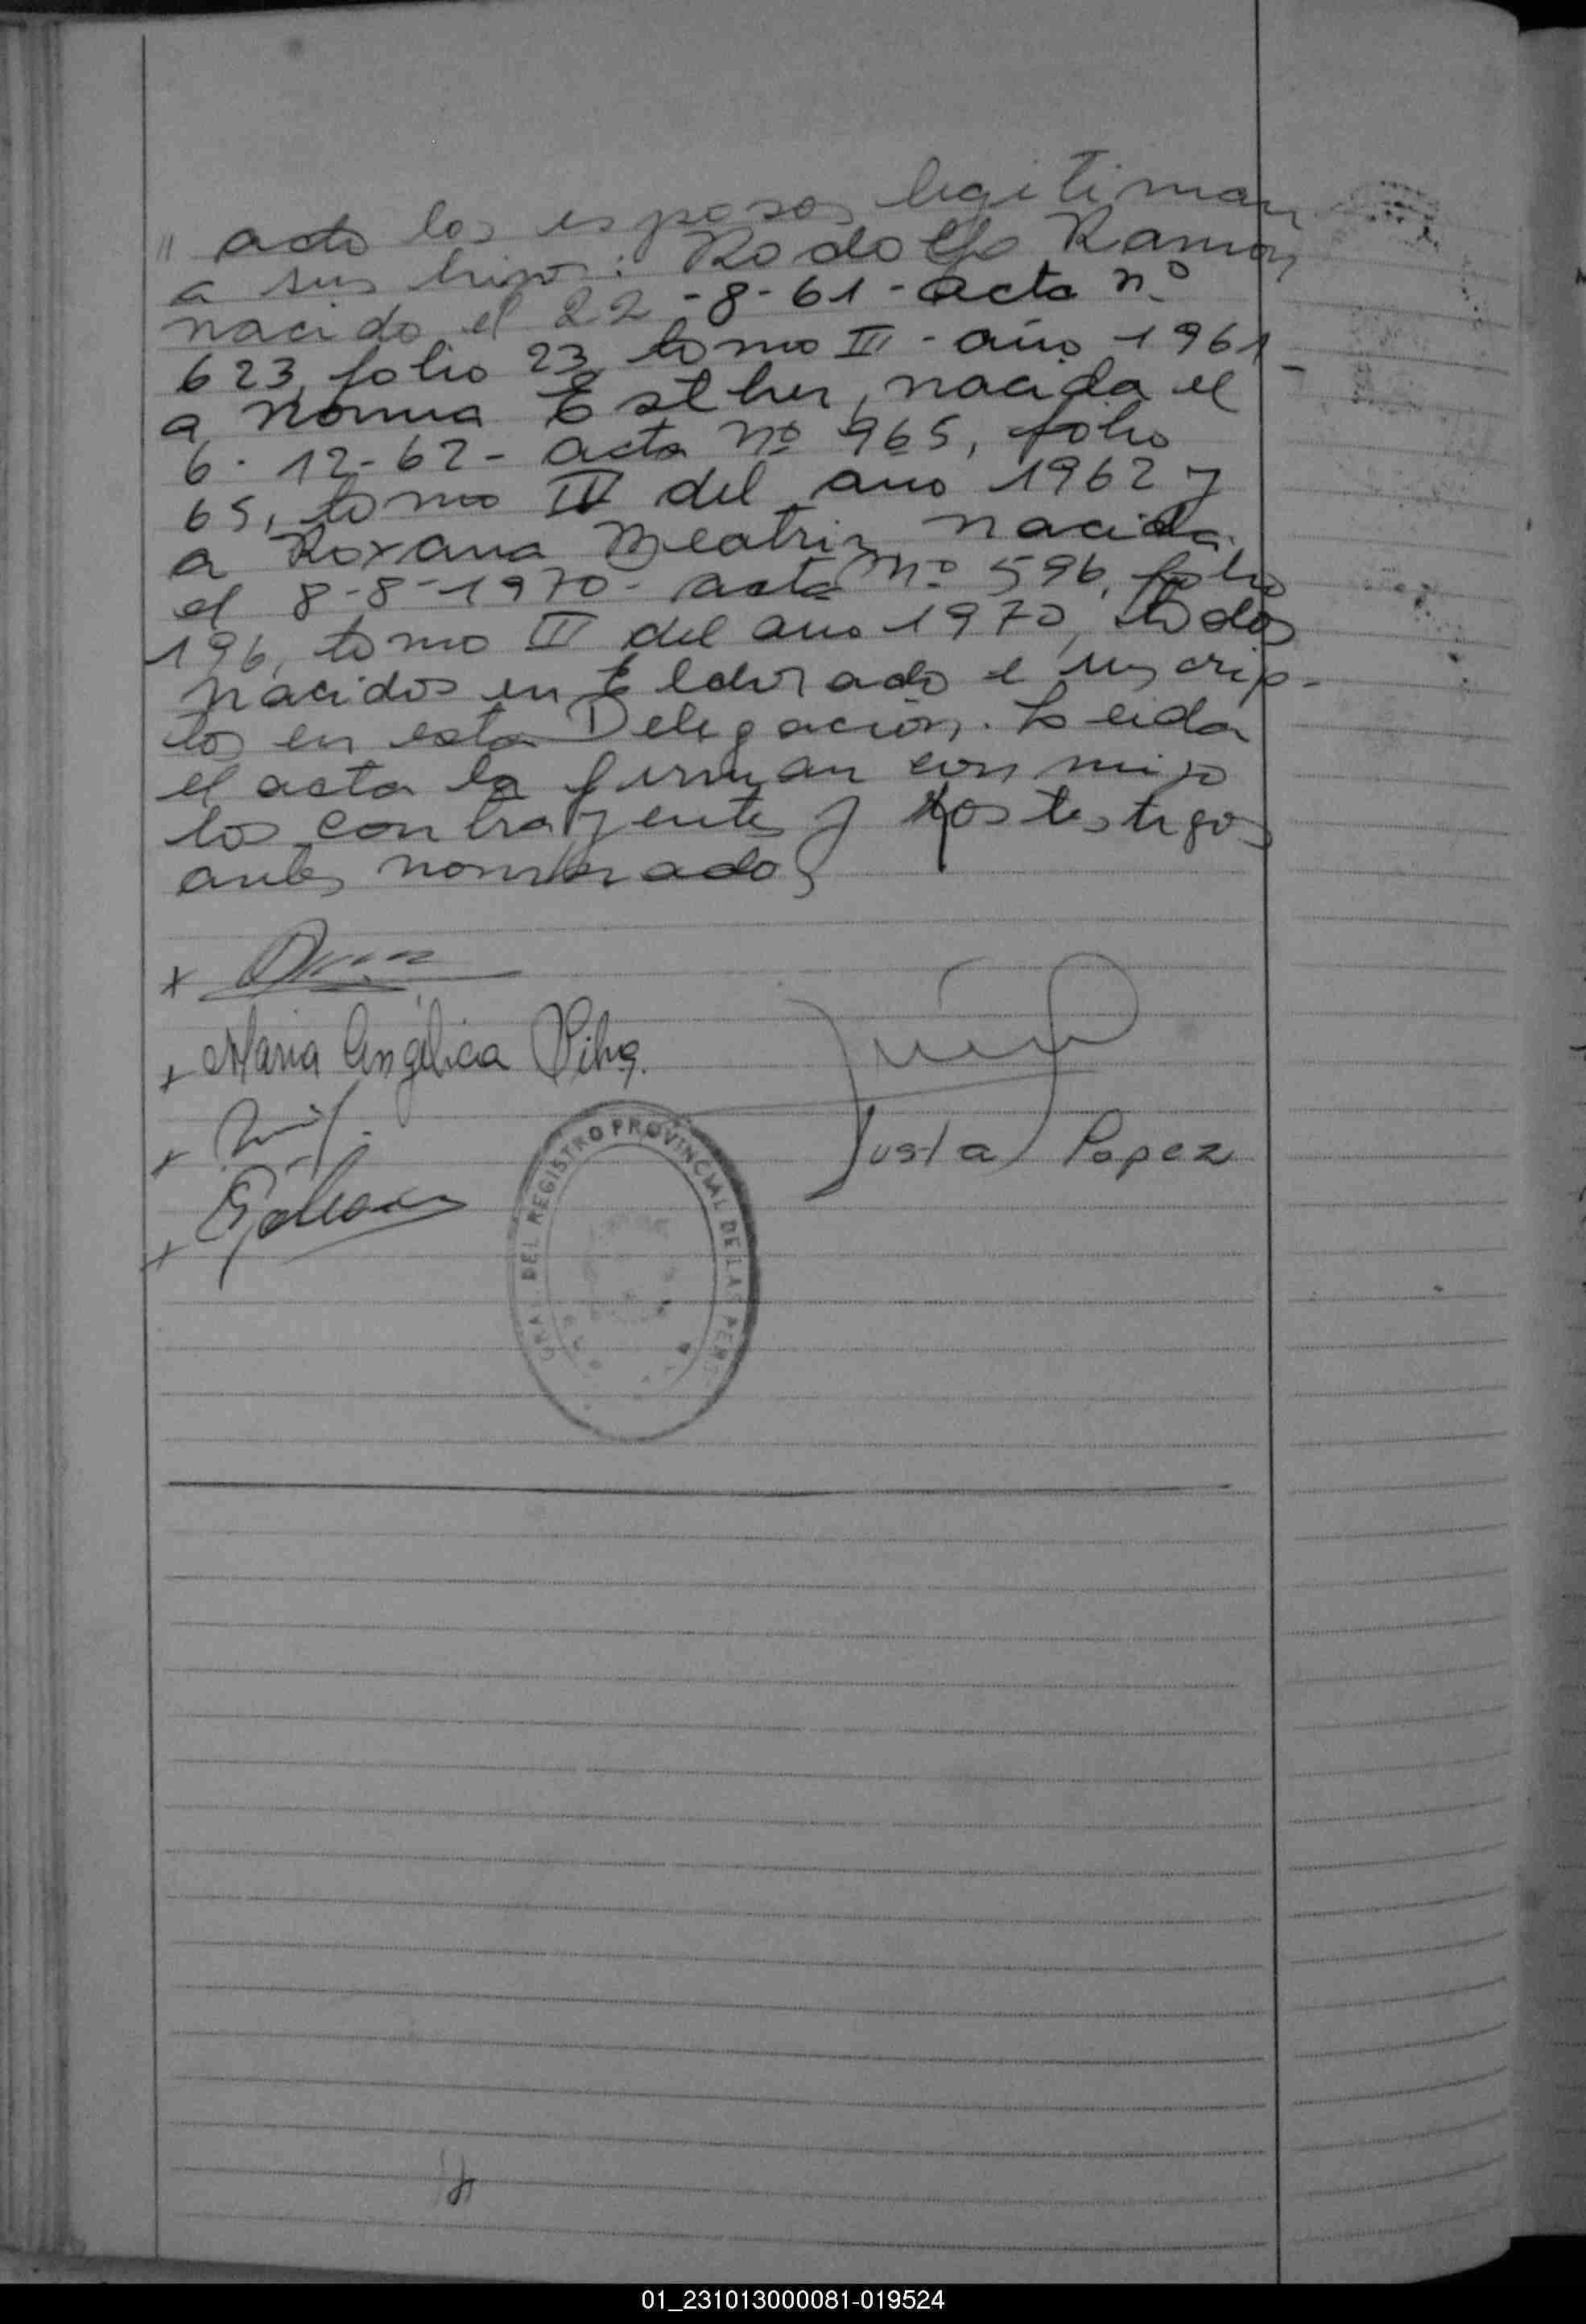 " acto los esposos legitiman
a sus hijos: Rodolfo Ramon,
nacido el 22-8-61 - acta n°
623, folio 23, tomo III - año 1961 -
a Norma Esther, nacida el
6-12-62 - acta nº 965, folio
65, tomo IV del año 1962 y
a Roxana Beatriz nacida
el 8-8-1970 - acta Nº 596, folio
196, tomo III del año 1970, todos
nacidos en Eldorado e inscrip-
tos en esta Delegación. Leida
el acta la firman conmigo
los contrayentes y los testigos
antes nombrados
x
x Maria Angélica Silva.
Justa Lopez
x
x
GRAL. DEL REGISTRO PROVINCIAL DE LAS PERS
01_231013000081-019524